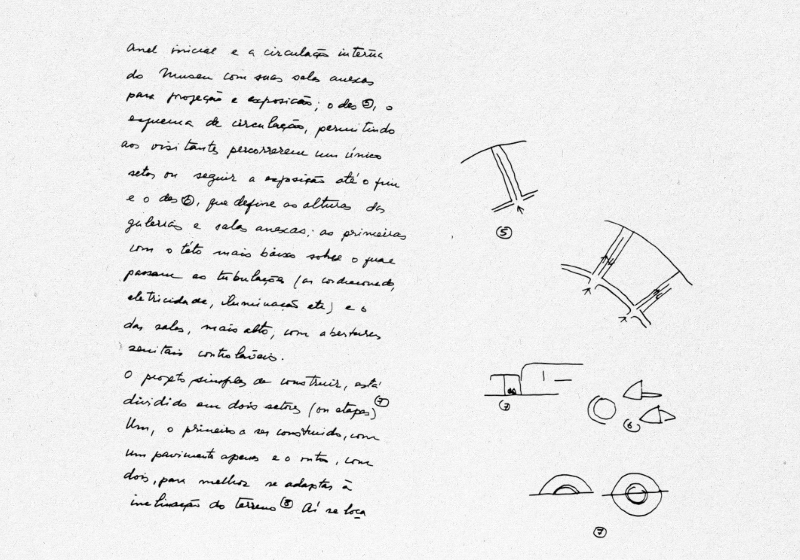 anel inicial e a circulação interna
do Museu com suas salas anexas
para projeção e exposição; o des ⑤, o
esquema de circulação, permitindo
aos visitantes percorrerem um único
setor ou seguir a exposição até o fim
e o des ⑥, que define as alturas das
galerias e salas anexas; as primeiras
com o této mais baixo sobre o qual
passam as tubulações (ar condicionado,
eletricidade, iluminação etc) e o
das salas, mais alto, com aberturas
zenitais controláveis.
O projeto simples de construir, está
dividido em dois setores (ou etapas) ⑦
Um, o primeiro a ser construido, com
um pavimento apenas e o outro, com
dois, para melhor se adaptar à
inclinação do terreno ⑧ Aí se loca
⑤
⑦
⑥
⑦